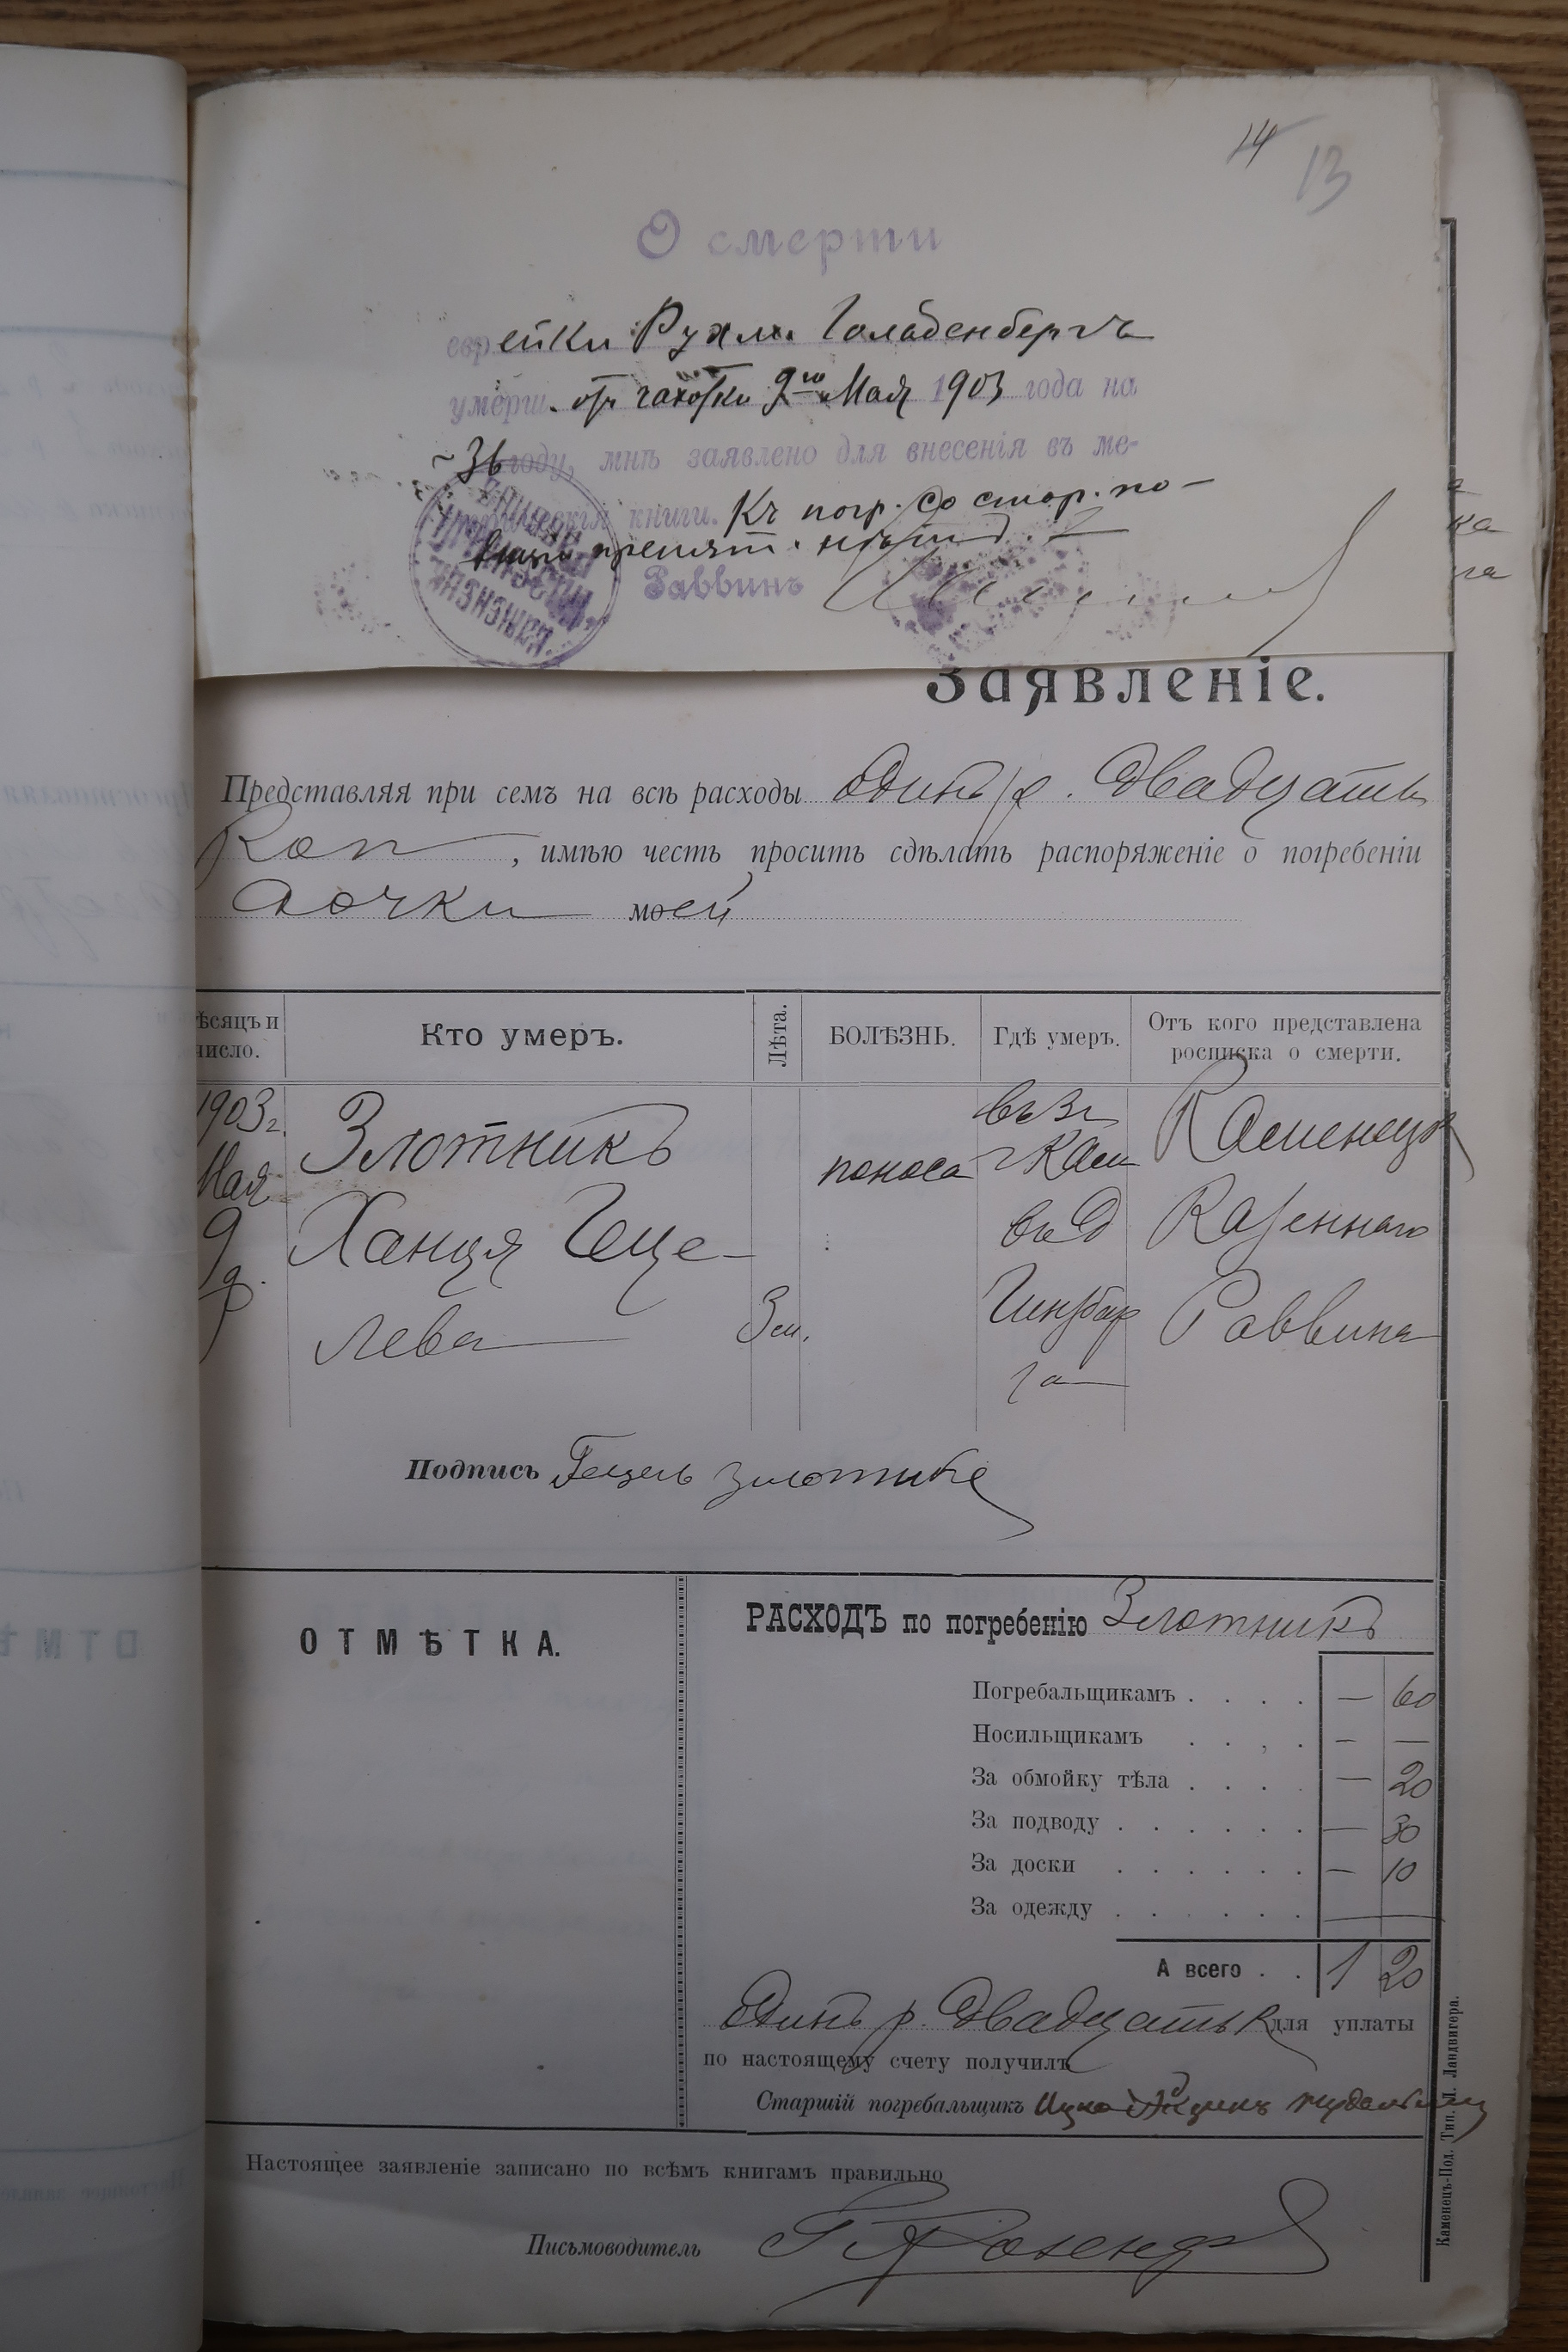 14 13
О смерти
еврейки Рухли Гольденбергъ
умерш. отъ чахотки 9го Мая 1903 года на
36 году, мнѣ заявлено для внесенія въ ме-
трическія книги. Къ погр. со стор. по-
препят. нѣтъ
Раввинъ
ка
га
Заявленіе.
Представляя при семъ на всѣ расходы Одинъ р. Двадцать
Коп, имѣю честь просить сдѣлать распоряженіе о погребеніи
дочки моей
ѣсяцъ и число. Кто умеръ. Лѣта. БОЛѢЗНЬ. Гдѣ умеръ. Отъ кого представлена росписка о смерти.
1903 г. Злотникъ поноса г Кам Каменецк
Мая Ханця Геце- въ д Казеннаго
9 лева 3 м. Гинзбур Раввина
д. га
Подпись Гецель Злотникъ
ОТМѢТКА.
РАСХОДЪ по погребенію Злотникъ
Погребальщикамъ . . . . — 60
Носильщикамъ . . , . — —
За обмойку тѣла . . . . — 20
За подводу . . . . . . — 30
За доски . . . . . . — 10
За одежду . . . . . . —
А всего . . 1 20
Одинъ р. Двадцать к для уплаты
по настоящему счету получилъ
Старшій погребальщикъ Ицко
Настоящее заявленіе записано по всѣмъ книгамъ правильно
Письмоводитель
Каменецъ-Под. Тип. Л. Ландвигера.